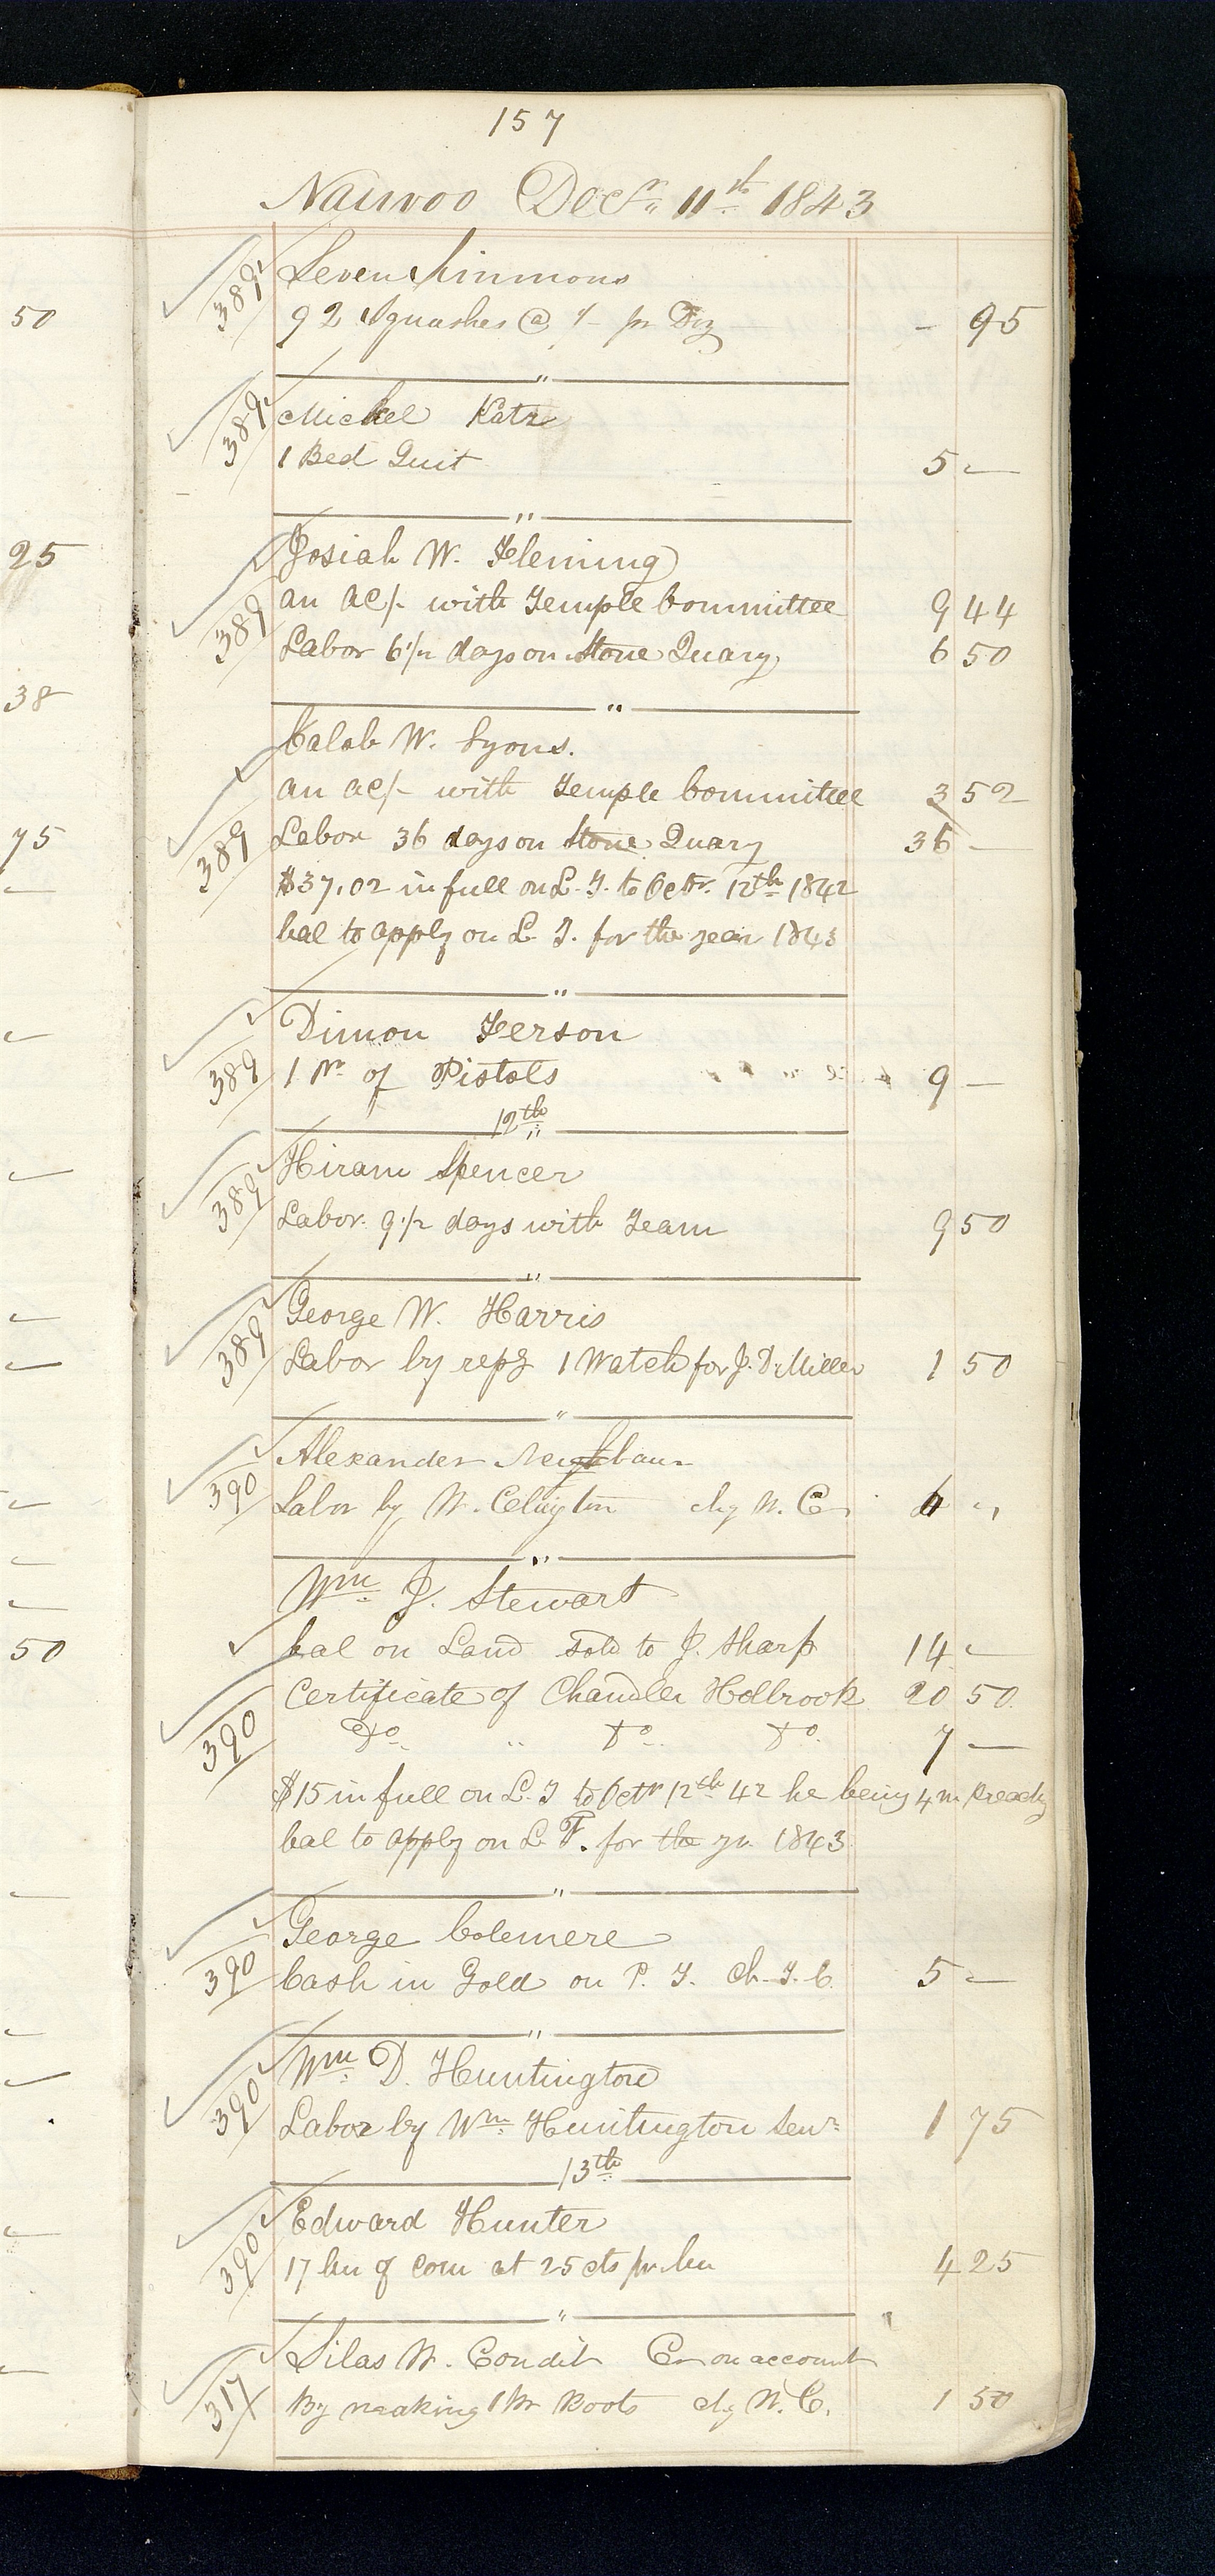 157
Nauvoo Decr. 11th 1843
389 Leven Simmons
92 Squashes @ 1/- pr Doz - 95
"
389 Michel Katz
1 Bed Quit 5 -
"
Josiah W. Fleming
an ac/- with Temple Committee 9 44
389 Labor 6 1/2 days on Stone Quary 6 50
"
Calab W. Lyons.
an ac/- with Temple Committee 3 52
389 Labor 36 days on Stone Quary 36 -
$37.02 in full on L. T. to Octr. 12th 1842
bal to apply on L T. for the year 1843
"
Dimon Ferson
389 1 Pr of Pistols 9 -
12th
"
389 Hiram Spencer
Labor 9 1/2 days with Team 9 50
"
389 George W. Harris
Labor by repg 1 Watch for J. D. Miller 1 50
"
Alexander Neighbaur
390 Labor by W. Clayton chg W. C. 6 "
"
Wm. J. Stewart
bal on Land sold to J. Sharp 14 -
Certificate of Chandler Holbrook 20 50
390 Do. " Do. Do. 7 -
$15 in full on L. T to Octr 12th 42 he being 4 m
bal to apply on L T. for the yr. 1843
"
George Colemere
390 Cash in Gold on P. T. Ch. T. C. 5 -
"
Wm. D. Huntington
390 Labor by Wm. Huntington Senr. 1 75
13th
Edward Hunter
390 17 bu of corn at 25 cts pr. bu 4 25
"
Silas W. Condit Cr on account
317 By making 1 Pr Boots chg W. C. 1 50
50
25
38
75
50